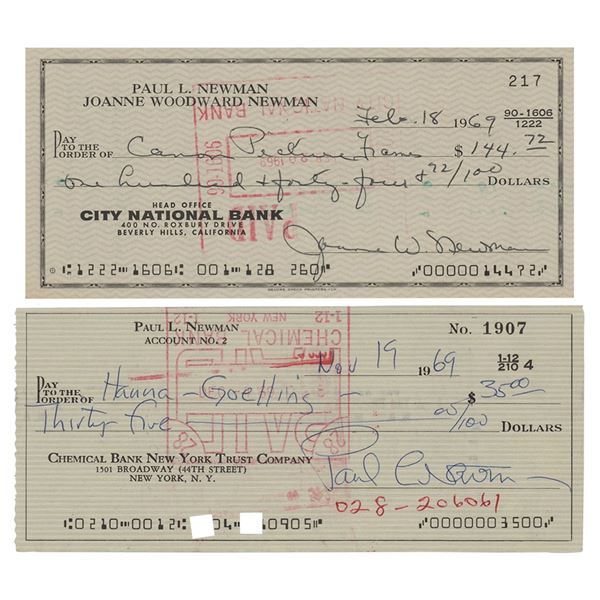 PAUL L. NEWMAN
JOANNE WOODWARD NEWMAN
217
Feb. 18 1969
90-1606
1222
PAY TO THE ORDER OF Canon Picture Frames $ 144.72
one hundred & forty-four & 72/100 DOLLARS
HEAD OFFICE
CITY NATIONAL BANK
400 NO. ROXBURY DRIVE
BEVERLY HILLS, CALIFORNIA
Joanne W. Newman
1222 1606 001 128 260
0000014472
DELUXE CHECK PRINTERS, INC.
PAID
90-1606
NATIONAL BANK
PAUL L. NEWMAN
ACCOUNT NO. 2
No. 1907
Nov 19 1969
1-12
210 4
PAY TO THE ORDER OF Hanna - Goelling - $ 35.00
Thirty five 00/100 DOLLARS
CHEMICAL BANK NEW YORK TRUST COMPANY
1501 BROADWAY (44TH STREET)
NEW YORK, N. Y.
Paul L Newman
028-206061
0210 0012 04 0905
0000003500
1-12
NEW YORK
CHEMICAL
BANK
1-12
PAID
87